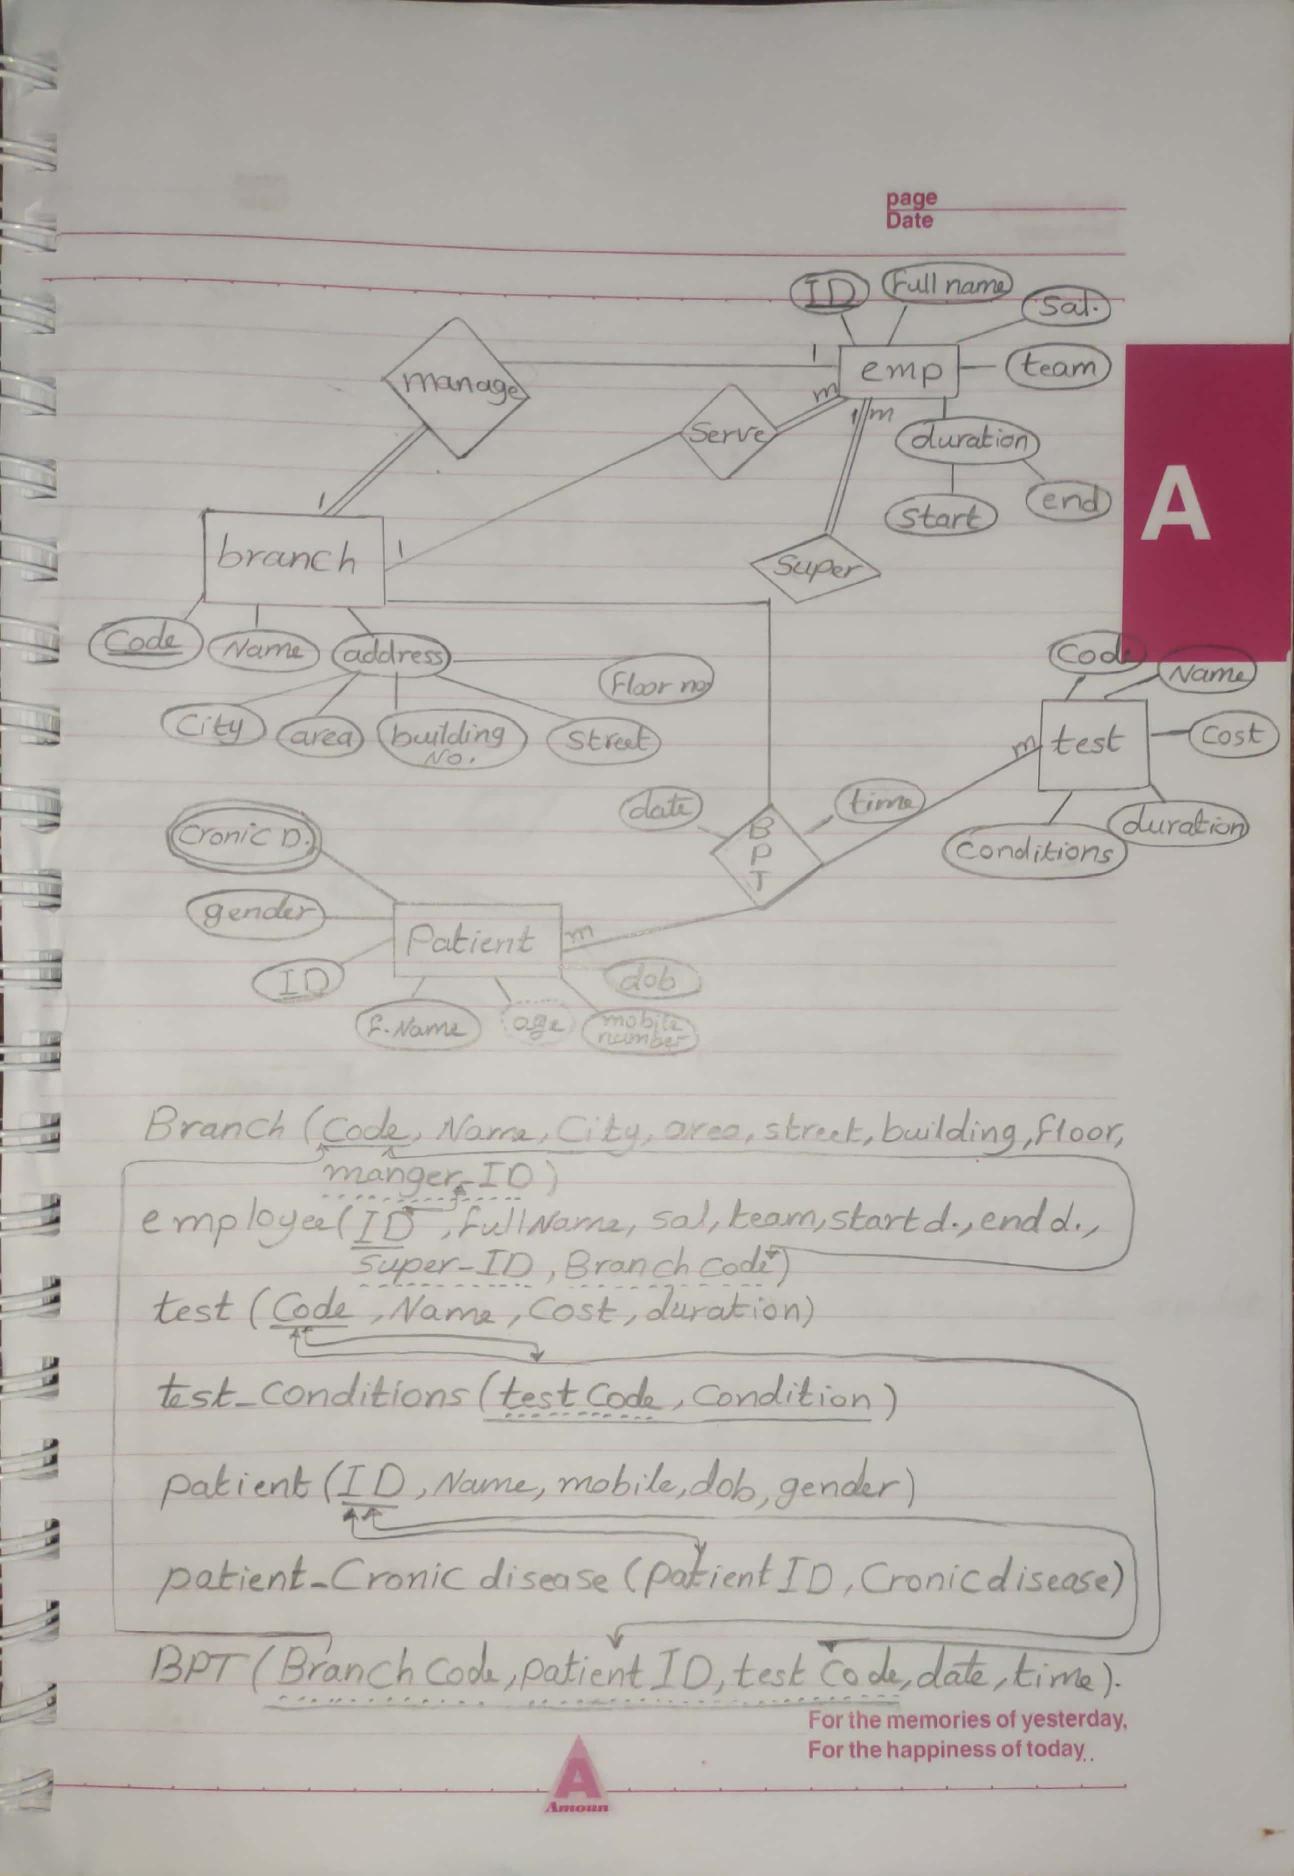 page
Date
ID
Full name
Sal.
emp
team
1
m
1
m
manage
Serve
duration
Start
end
Super
1
branch
1
Code
Name
address
Floor no
City
area
building
No.
Street
Code
Name
test
m
Cost
duration
Conditions
date
time
B
P
T
Cronic D.
gender
Patient
m
ID
dob
f.Name
age
mobile
number
A
Branch (Code, Name, City, area, street, building, floor,
manger-ID)
employee(ID, fullName, sal, team, start d., end d.,
Super-ID, Branch Code)
test (Code, Name, Cost, duration)
test_Conditions (test Code, Condition)
patient (ID, Name, mobile, dob, gender)
patient_Cronic disease (patient ID, Cronic disease)
BPT (Branch Code, patient ID, test Code, date, time).
For the memories of yesterday,
For the happiness of today..
A
Amoun